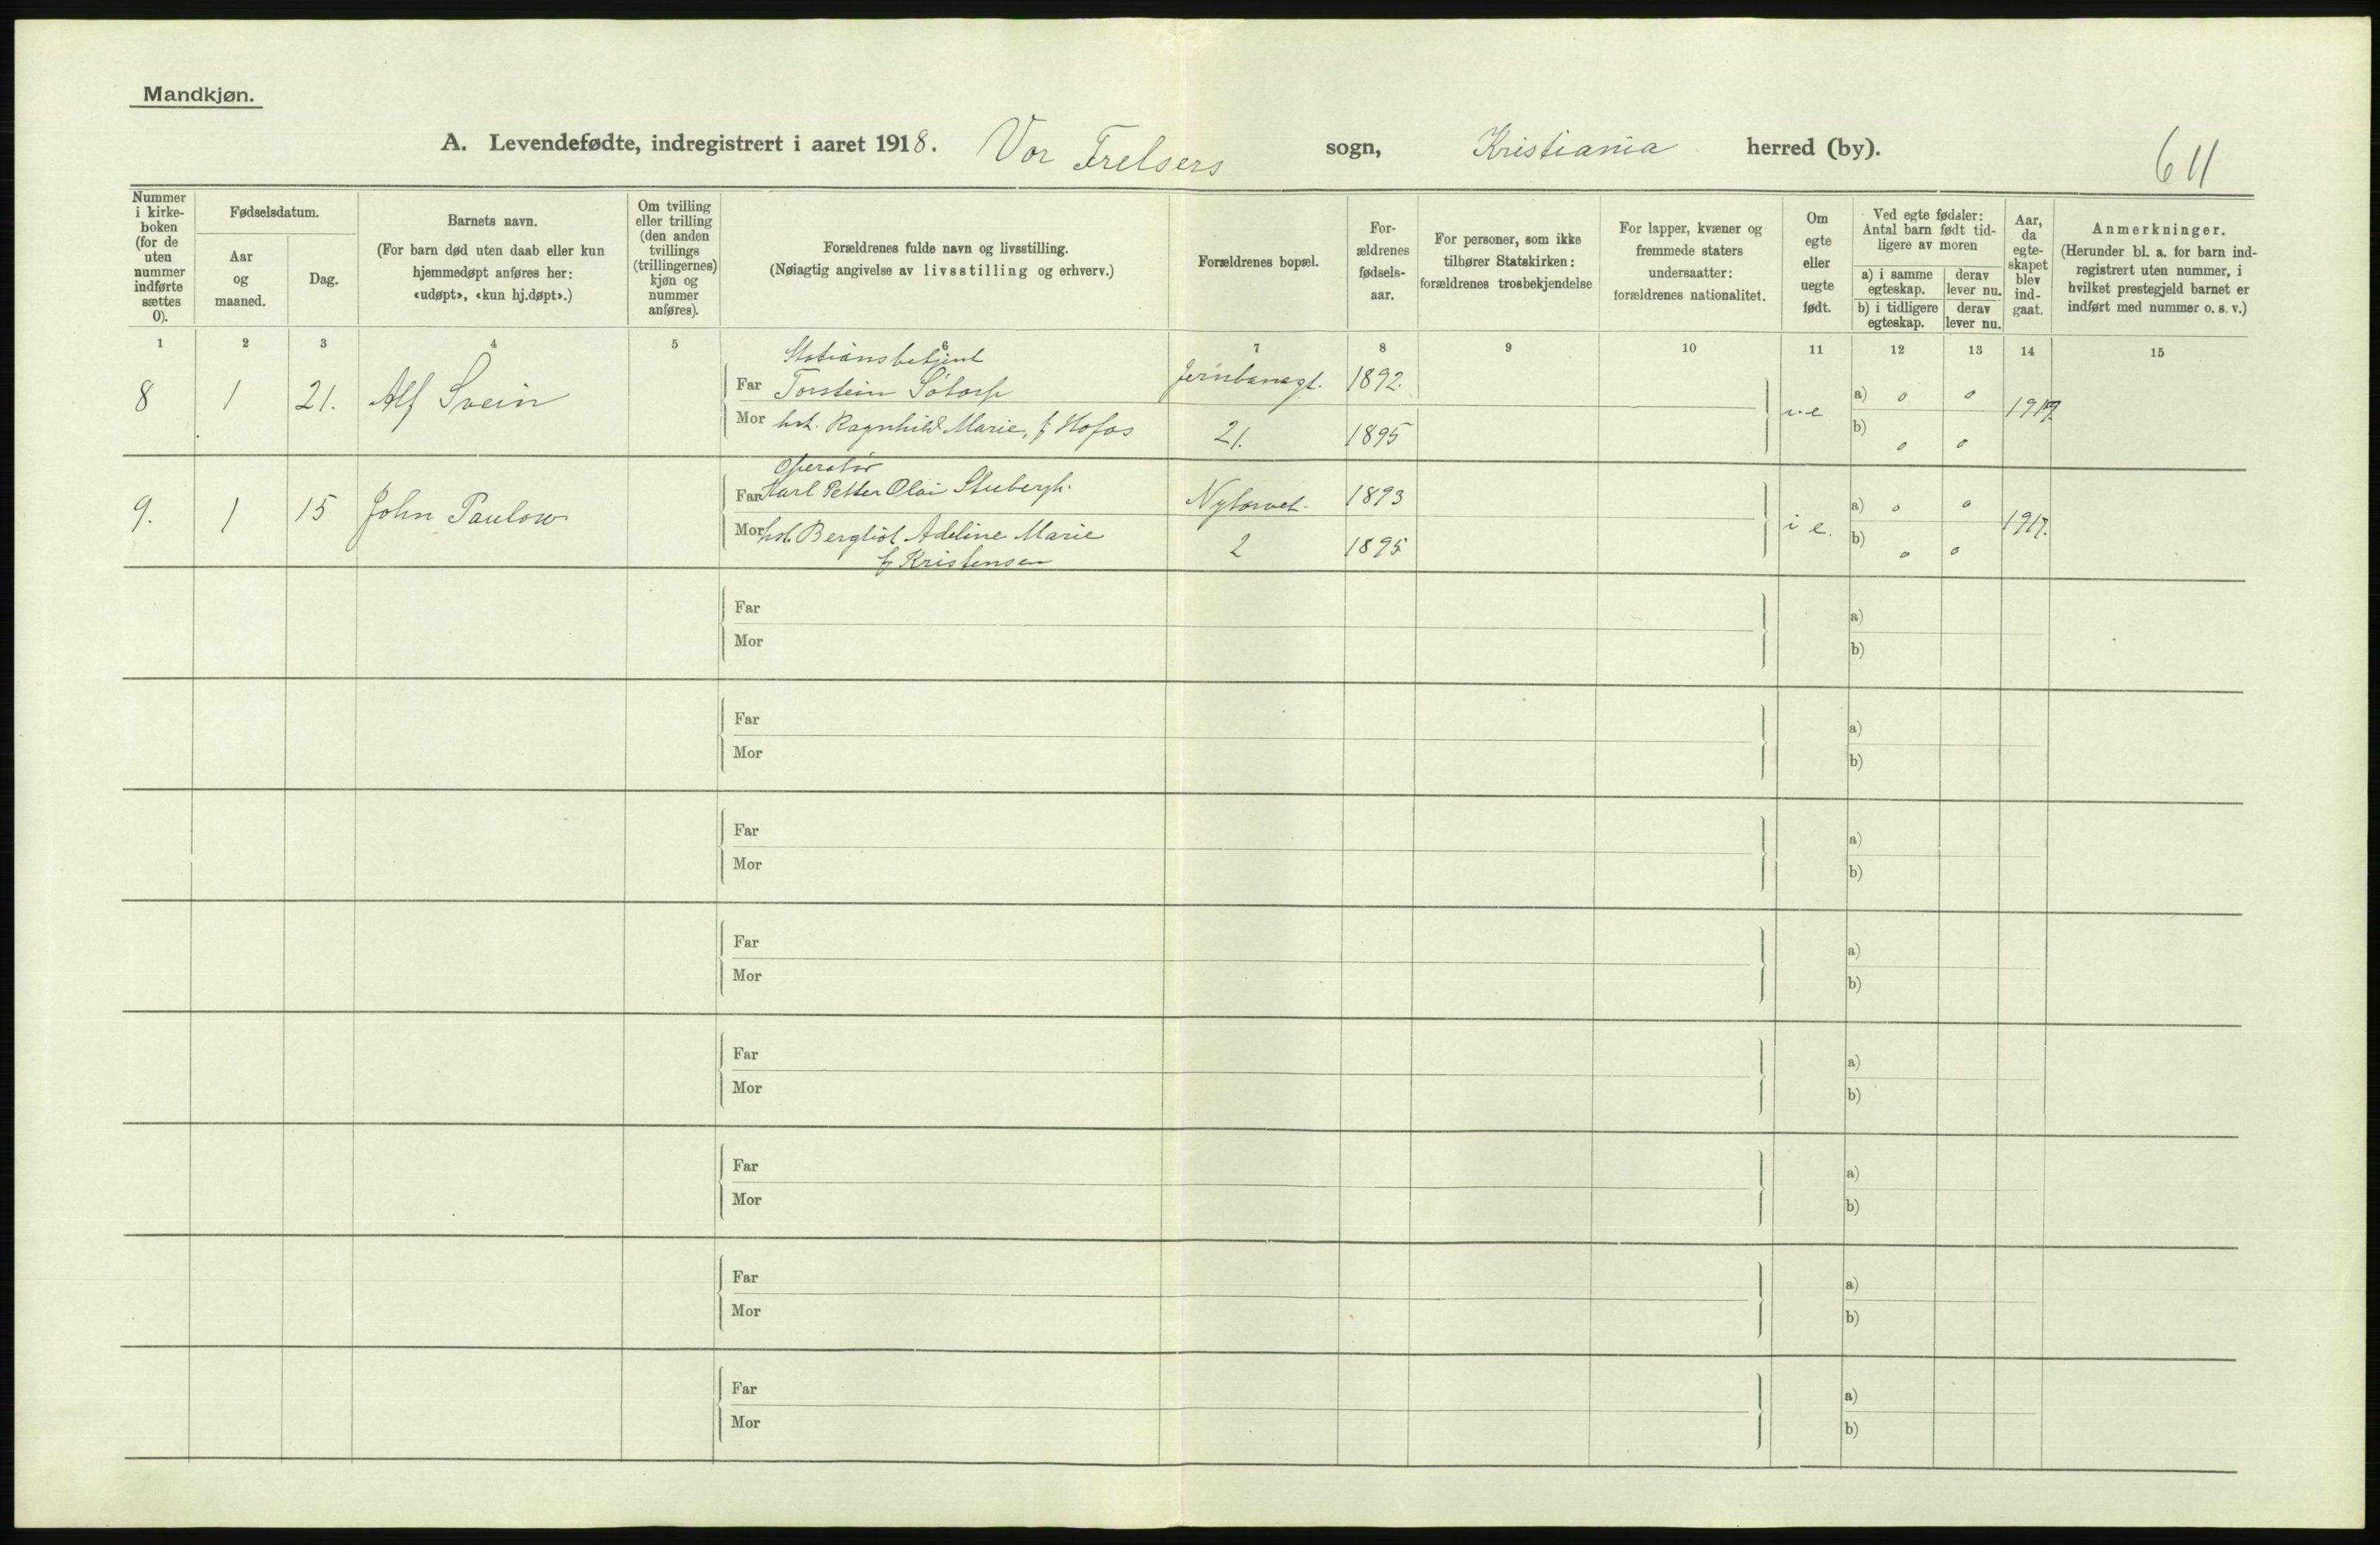 Mandkjøn.
A. Levendefødte, indregistrert i aaret 1918. Vor Frelsers sogn, Kristiania herred (by).
611
Nummer
i kirke-
boken
(for de
uten
nummer
indførte
sættes
0).
Fødselsdatum.
Aar
og
maaned.
Dag.
Barnets navn.
(For barn død uten daab eller kun
hjemmedøpt anføres her:
«udøpt», «kun hj.døpt».)
Om tvilling
eller trilling
(den anden
tvillings
(trillingernes)
kjøn og
nummer
anføres).
Forældrenes fulde navn og livsstilling.
(Nøiagtig angivelse av livsstilling og erhverv.)
Forældrenes bopæl.
For-
ældrenes
fødsels-
aar.
For personer, som ikke
tilhører Statskirken:
forældrenes trosbekjendelse
For lapper, kvæner og
fremmede staters
undersaatter:
forældrenes nationalitet.
Om
egte
eller
uegte
født.
Ved egte fødsler:
Antal barn født tid-
ligere av moren
a) i samme
egteskap.
derav
lever nu.
b) i tidligere
egteskap.
derav
lever nu.
Aar,
da
egte-
skapet
blev
ind-
gaat.
Anmerkninger.
(Herunder bl. a. for barn ind-
registrert uten nummer, i
hvilket prestegjeld barnet er
indført med nummer o. s. v.)
1 2 3 4 5 6 7 8 9 10 11 12 13 14 15
Stationsbetjent
8 1 21. Alf Svein Far Torstein Jernbanegt. 1892. i.e. a) 0 0 1917.
Mor hst. Ragnhild Marie, f. Hofos 21. 1895 b) 0 0
Operatør
9. 1 15 John Paulow Far Karl Petter Olai Nytorvet. 1893 i e. a) 0 0 1917.
Mor hst. Bergliot Adeline Marie 2 1895 b) 0 0
f. Kristensen
Far a)
Mor b)
Far a)
Mor b)
Far a)
Mor b)
Far a)
Mor b)
Far a)
Mor b)
Far a)
Mor b)
Far a)
Mor b)
Far a)
Mor b)